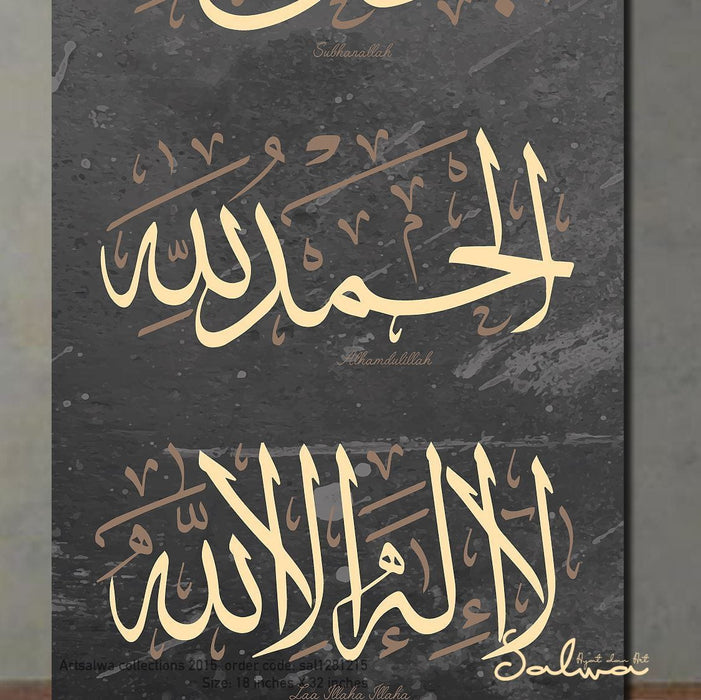 Subhanallah
الحمد لله
Alhamdulillah
لا إله إلا الله
Salwa
Ayat dan Art
Artsalwa collections 2015, order code: sal1231215
Size: 18 inches x 32 inches
Laa Illaha Illaha